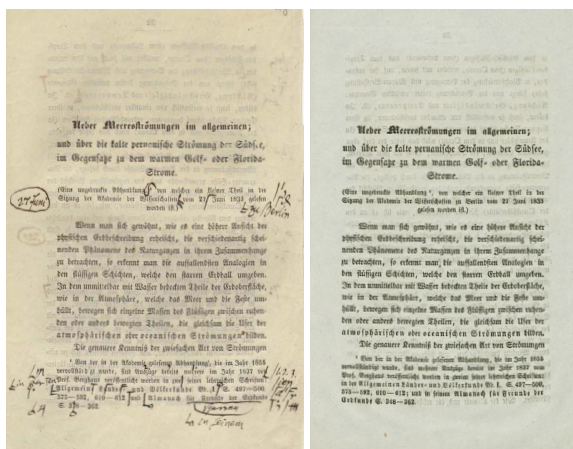 Ueber Meeresströmungen im allgemeinen;
und über die kalte peruanische Strömung der Südsee,
im Gegensatze zu dem warmen Golf- oder Florida-
Strome.
(Eine ungedruckte Abhandlung, von welcher ein kleiner Theil in der
Sitzung der Akademie der Wissenschaften vom 27 Juni 1833
gelesen worden ist.)
27 Juni
zu Berlin
Wenn man sich gewöhnt, wie es eine höhere Ansicht der
physischen Erdbeschreibung erheischt, die verschiedenartig schei-
nenden Phänomene des Naturganzen in ihrem Zusammenhange
zu betrachten, so erkennt man die auffallendsten Analogien in
den flüssigen Schichten, welche den starren Erdball umgeben.
In dem unmittelbar mit Wasser bedeckten Theile der Erdoberfläche,
wie in der Atmosphäre, welche das Meer und die Feste um-
hüllt, bewegen sich einzelne Massen des Flüssigen zwischen ruhen-
den oder anders bewegten Theilen, die gleichsam die Ufer der
atmosphärischen oder oceanischen Strömungen bilden.
Die genauere Kenntniß der zwiefachen Art von Strömungen
Von der in der Akademie gelesenen Abhandlung, die im Jahr
vervollständigt wurde, sind Auszüge bereits im Jahr 1837 von
Prof. Berghaus veröffentlicht worden in zwei seiner lehrreichen Schriften:
Allgemeine Länder- und Völkerkunde
575—592, 610—612 und Almanach für Freunde der Erdkunde
S. 348—362.
in seinem
Ueber Meeresströmungen im allgemeinen;
und über die kalte peruanische Strömung der Südsee,
im Gegensatze zu dem warmen Golf- oder Florida-
Strome.
(Eine ungedruckte Abhandlung, von welcher ein kleiner Theil in der
Sitzung der Akademie der Wissenschaften zu Berlin vom 27 Juni 1833
gelesen ist.)
Wenn man sich gewöhnt, wie es eine höhere Ansicht der
physischen Erdbeschreibung erheischt, die verschiedenartig schei-
nenden Phänomene des Naturganzen in ihrem Zusammenhange
zu betrachten, so erkennt man die auffallendsten Analogien in
den flüssigen Schichten, welche den starren Erdball umgeben.
In dem unmittelbar mit Wasser bedeckten Theile der Erdoberfläche,
wie in der Atmosphäre, welche das Meer und die Feste um-
hüllt, bewegen sich einzelne Massen des Flüssigen zwischen ruhen-
den oder anders bewegten Theilen, die gleichsam die Ufer der
atmosphärischen oder oceanischen Strömungen bilden.
Die genauere Kenntniß der zwiefachen Art von Strömungen
Von der in der Akademie gelesenen Abhandlung, die im Jahr
vervollständigt wurde, sind mehrere Auszüge bereits im Jahr 1837 von
Prof. Berghaus veröffentlicht worden in zweien seiner lehrreichen Schriften:
in der Allgemeinen Länder- und Völkerkunde Bd. I. S. 497—500,
575—592, 610—612; und in seinem Almanach für Freunde der
Erdkunde S. 348—362.